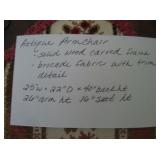 Antique Armchair
- solid wood carved frame
- brocade fabric with trim
detail
25"W x 22"D x 40" back ht
26" arm ht 16" seat ht